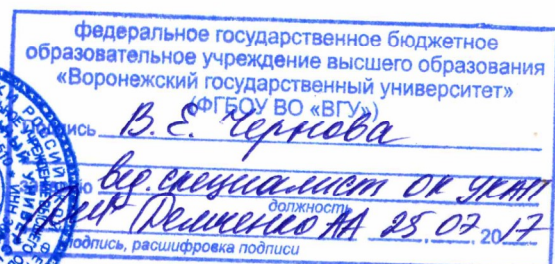 федеральное государственное бюджетное
образовательное учреждение высшего образования
«Воронежский государственный университет»
(ФГБОУ ВО «ВГУ»)
В. Е. Чернова
вед. специалист ОК УКАП
должность
Демченко АА 25 07 2017
подпись, расшифровка подписи